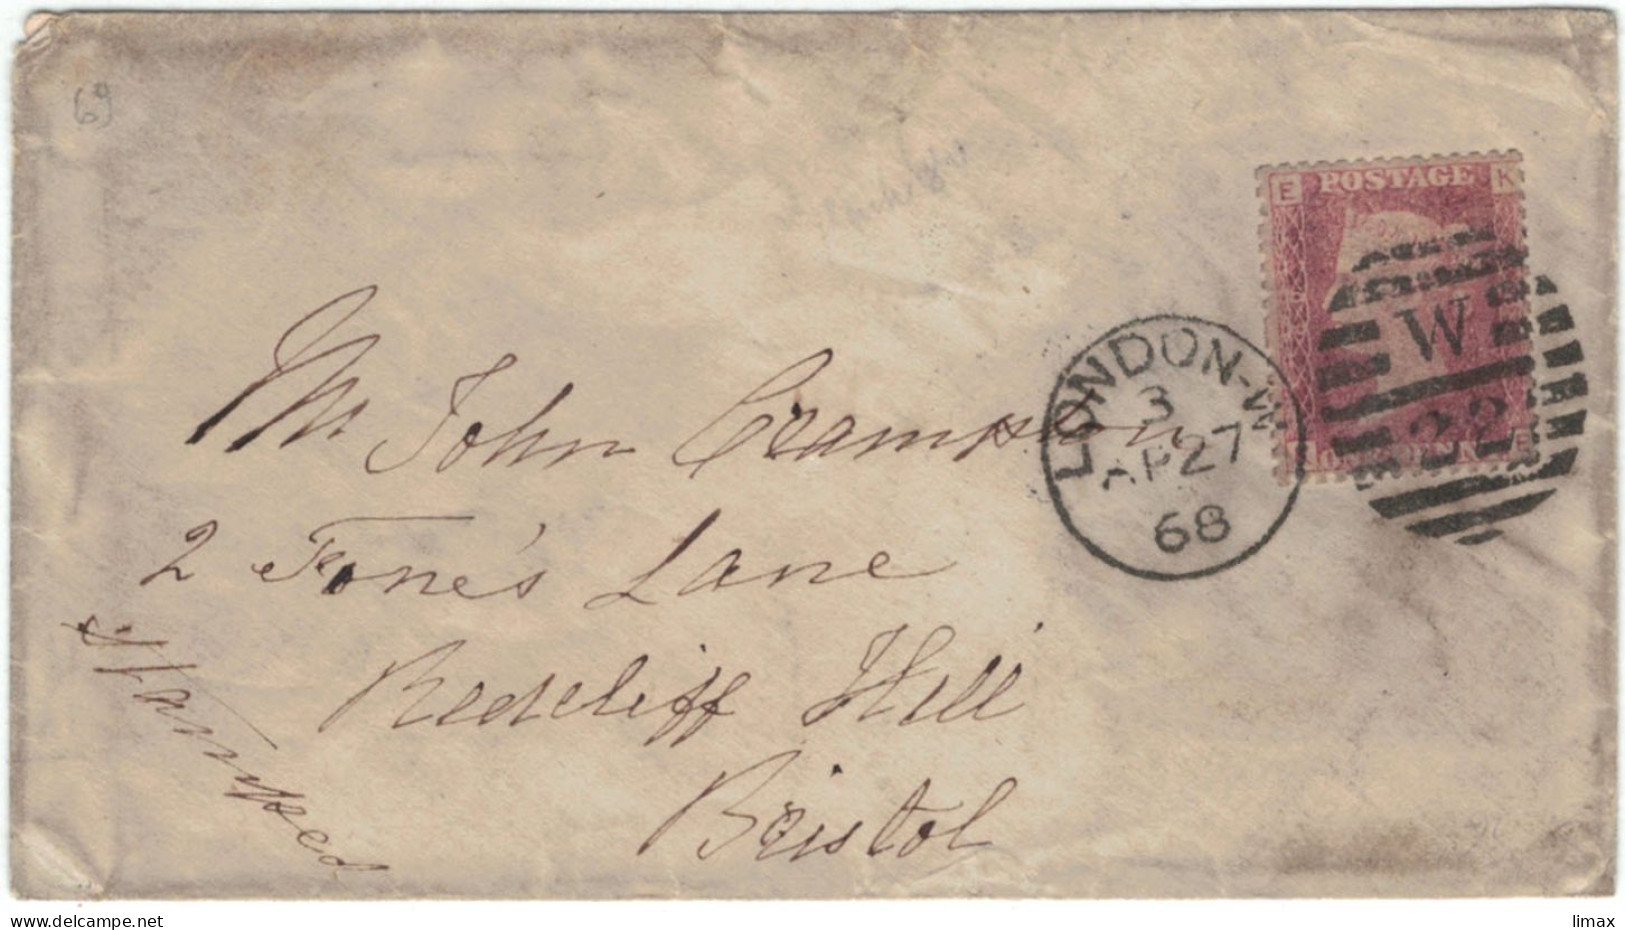 69
E POSTAGE K
LONDON-W
3
AP 27
68
W
22
K E
Mr John Crampton
2 Fone's Lane
Redcliff Hill
Bristol
Stamped
www.delcampe.net
limax